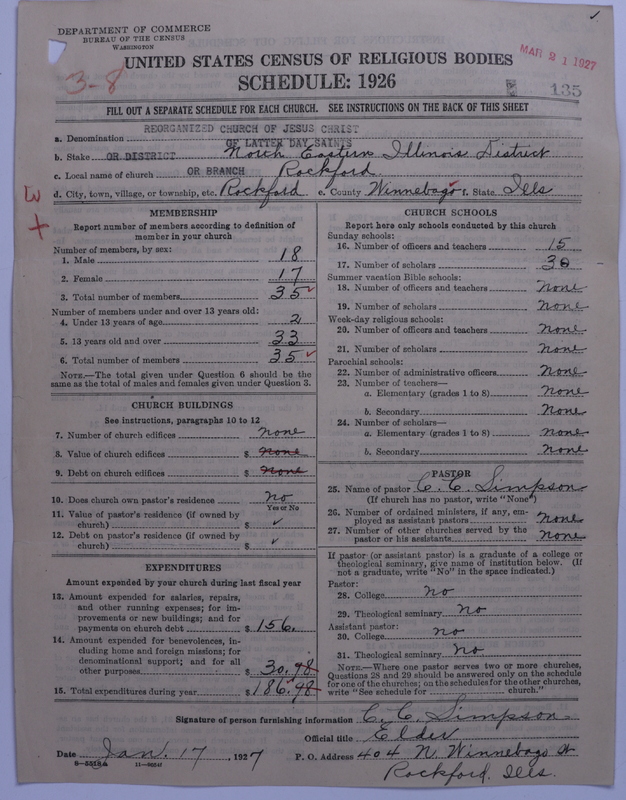 DEPARTMENT OF COMMERCE
BUREAU OF THE CENSUS
WASHINGTON
UNITED STATES CENSUS OF RELIGIOUS BODIES
MAR 21 1927
3-8
SCHEDULE: 1926
135
FILL OUT A SEPARATE SCHEDULE FOR EACH CHURCH. SEE INSTRUCTIONS ON THE BACK OF THIS SHEET
REORGANIZED CHURCH OF JESUS CHRIST
a. Denomination OF LATTER DAY SAINTS
b. State OR DISTRICT North Eastern Illinois District
c. Local name of church OR BRANCH Rockford
d. City, town, village, or township, etc. Rockford e. County Winnebago f. State Ills
MEMBERSHIP
Report number of members according to definition of
member in your church
Number of members, by sex:
1. Male 18
2. Female 17
3. Total number of members 35
Number of members under and over 13 years old:
4. Under 13 years of age 2
5. 13 years old and over 33
6. Total number of members 35
NOTE.—The total given under Question 6 should be
same as the total of males and females given under Question 3.
CHURCH BUILDINGS
See instructions, paragraphs 10 to 12
7. Number of church edifices none
8. Value of church edifices $ none
9. Debt on church edifices $ none
10. Does church own pastor's residence no
Yes or No
11. Value of pastor's residence (if owned by
church) $ ✓
12. Debt on pastor's residence (if owned by
church) $ ✓
EXPENDITURES
Amount expended by your church during last fiscal year
13. Amount expended for salaries, repairs,
and other running expenses; for im-
provements or new buildings; and for
payments on church debt $ 156.
14. Amount expended for benevolences, in-
cluding home and foreign missions; for
denominational support; and for all
other purposes $ 30.98
15. Total expenditures during year $ 186.98
CHURCH SCHOOLS
Report here only schools conducted by this church
Sunday schools:
16. Number of officers and teachers 15
17. Number of scholars 30
Summer vacation Bible schools:
18. Number of officers and teachers none
19. Number of scholars none
Week-day religious schools:
20. Number of officers and teachers none
21. Number of scholars none
Parochial schools:
22. Number of administrative officers none
23. Number of teachers—
a. Elementary (grades 1 to 8) none
b. Secondary none
24. Number of scholars—
a. Elementary (grades 1 to 8) none
b. Secondary none
PASTOR
25. Name of pastor C. C. Simpson
(If church has no pastor, write "None")
26. Number of ordained ministers, if any, em-
ployed as assistant pastors none
27. Number of other churches served by the
pastor or his assistants none
If pastor (or assistant pastor) is a graduate of a college or
theological seminary, give name of institution below. (If
not a graduate, write "No" in the space indicated.)
Pastor:
28. College no
29. Theological seminary no
Assistant pastor:
30. College no
31. Theological seminary no
NOTE.—Where one pastor serves two or more churches,
Questions 28 and 29 should be answered only on the schedule
for one of the churches; on the schedules for the other churches,
write "See schedule for church."
Signature of person furnishing information C. C. Simpson
Official title Elder
Date Jan. 17, 1927 P. O. Address 404 N. Winnebago St
8-5518a
Rockford, Ills.